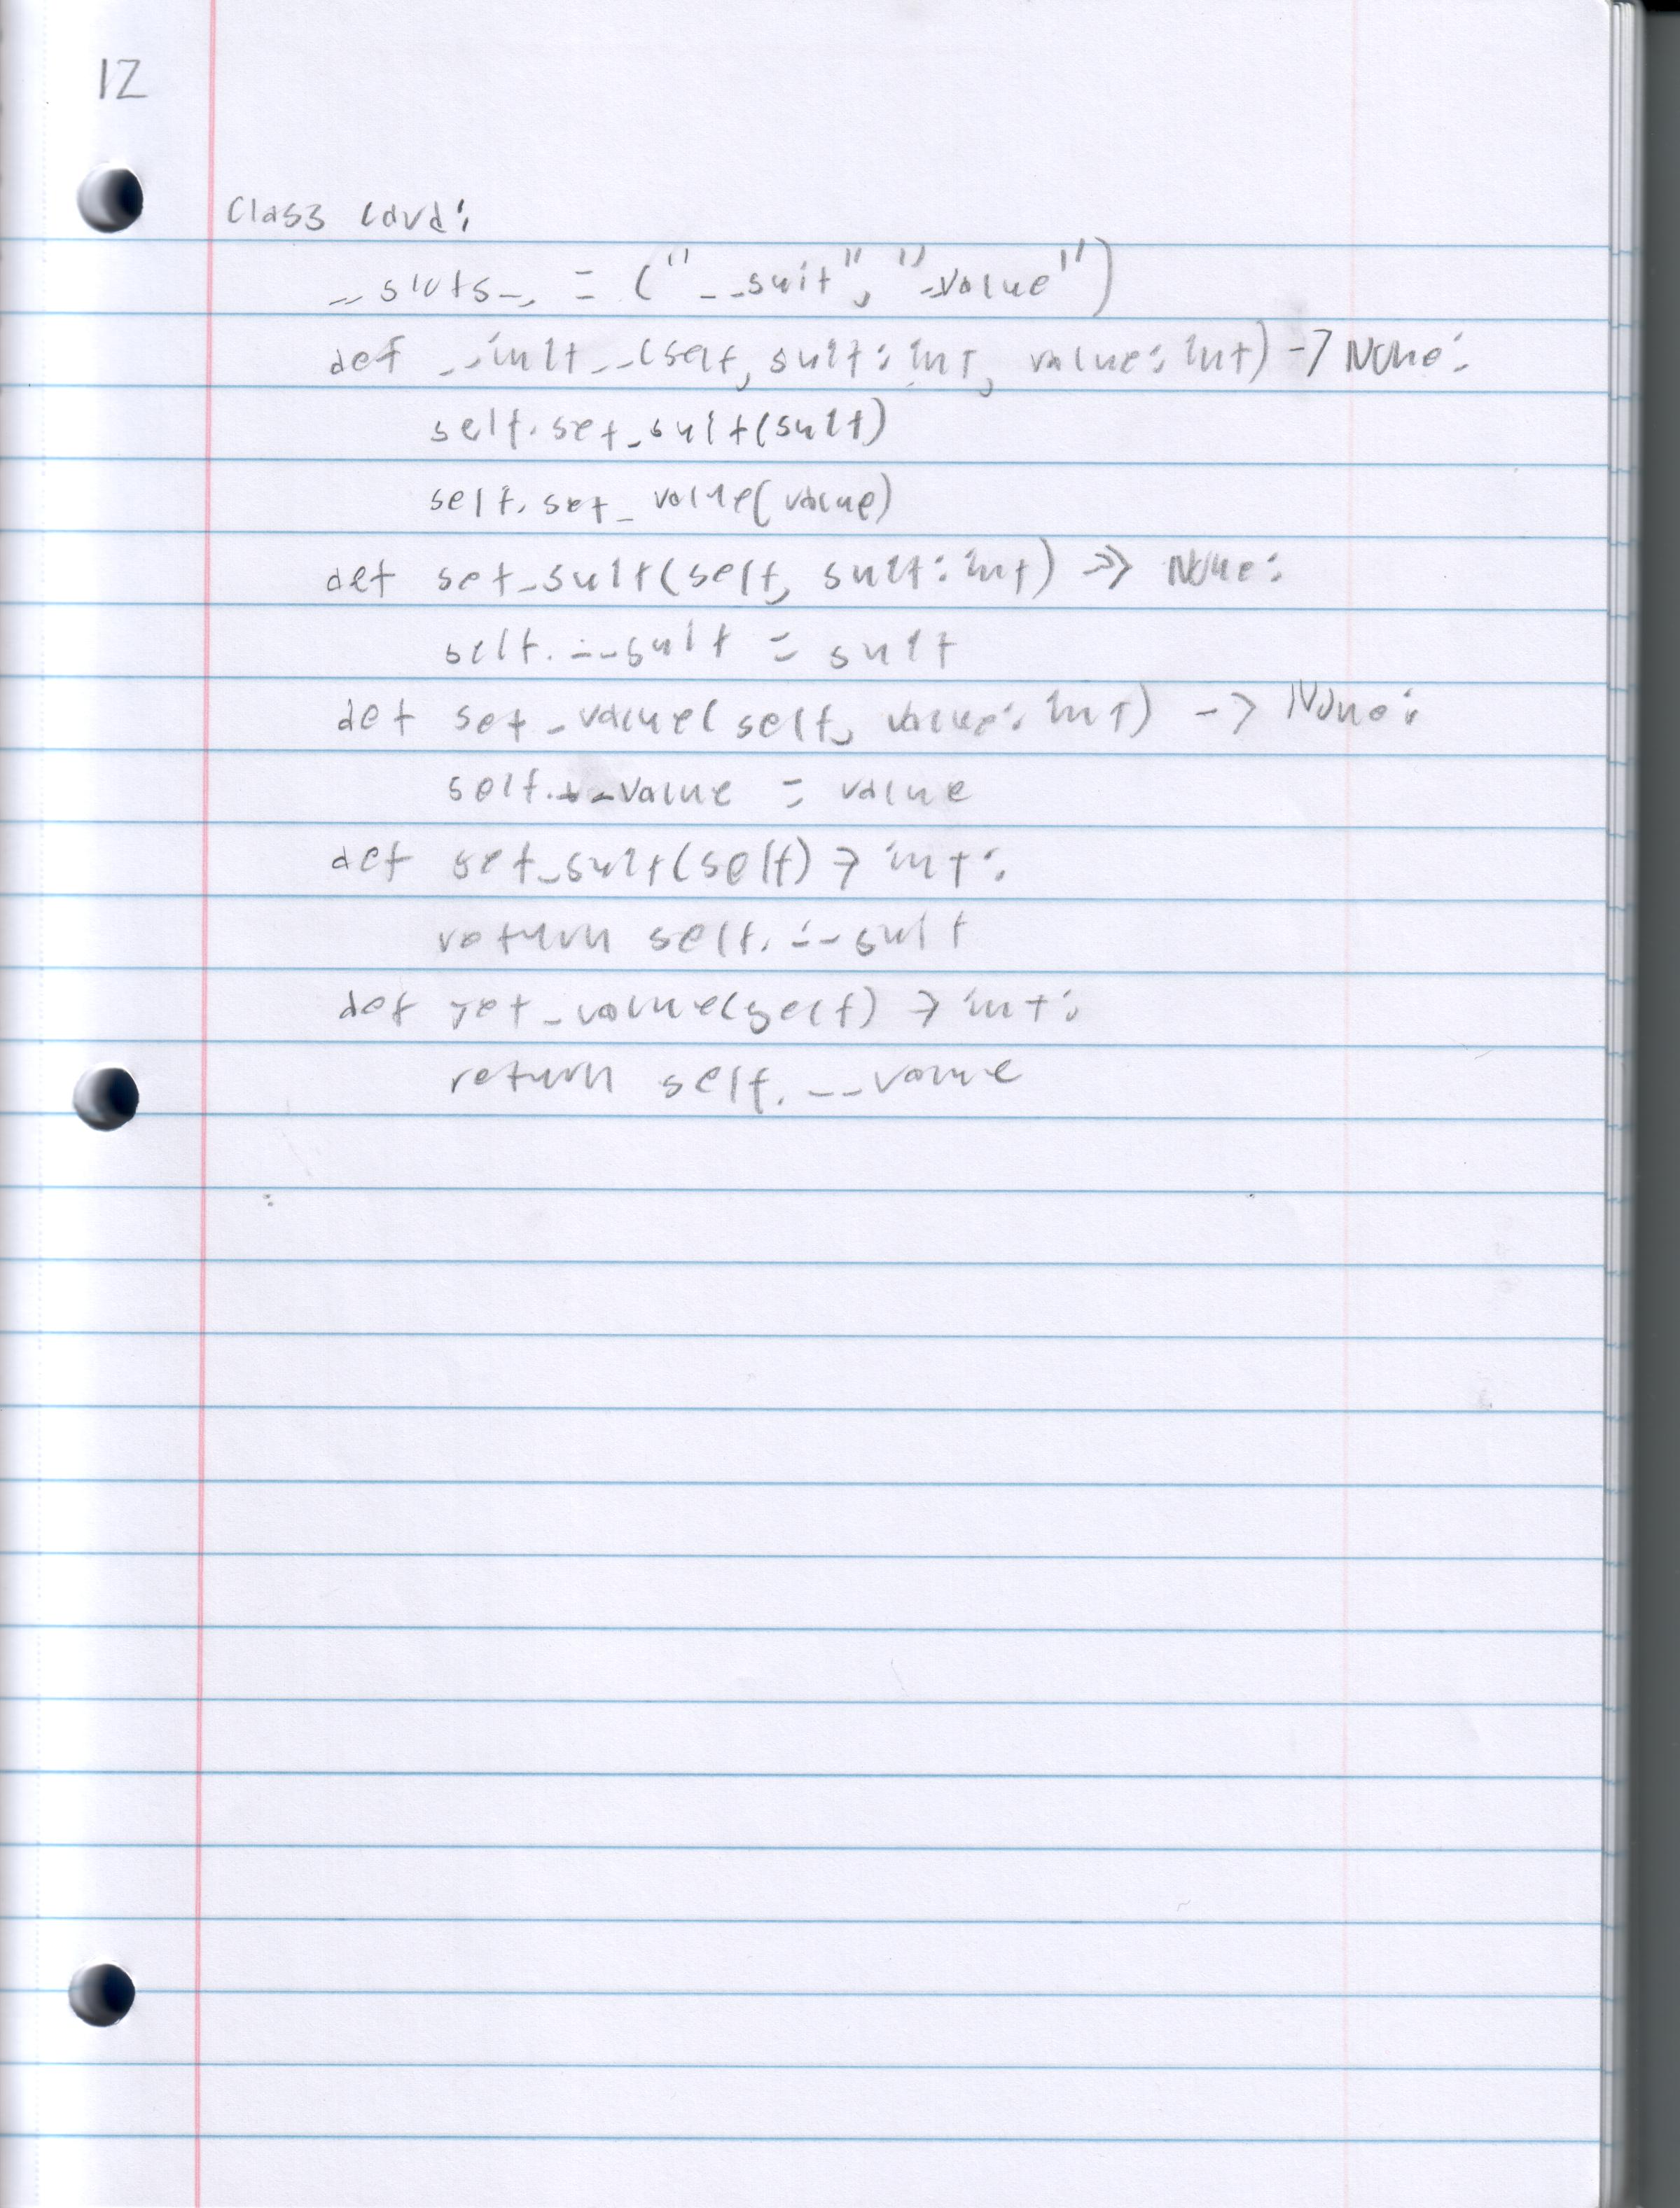 12
class Card:
__slots__ = ("__suit", "__value")
def __init__(self, suit: int, value: int) -> None:
self.set_suit(suit)
self.set_value(value)
def set_suit(self, suit: int) -> None:
self.__suit = suit
def set_value(self, value: int) -> None:
self.__value = value
def get_suit(self) -> int:
return self.__suit
def get_value(self) -> int:
return self.__value